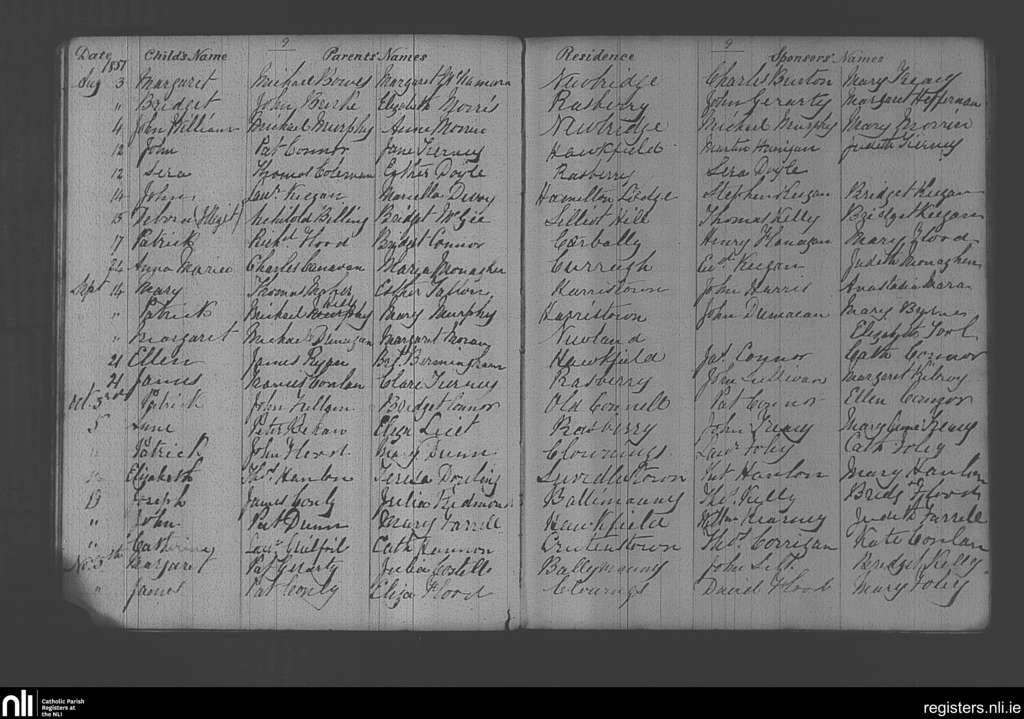 9 9
Date 1857 Child's Name Parents' Names Residence Sponsors' Names
Aug 3 Margaret Michael Bowes Margaret McNamara Newbridge Charles Burton Mary Treacy
" Bridget John Burke Elizabeth Morris Rasberry John Gerarty Margaret Heffernan
4 John William Michael Murphy Anne Morrin Newbridge Michael Murphy Mary Morrin
12 John Pat Connor Jane Tierney Hawkfield Martin Hanigan Judith Tierney
12 Sera Thomas Coleman Esther Doyle Rasberry Sera Doyle
14 John Lawr. Keegan Marcella Hamilton Lodge Stephen Keegan Bridget Keegan
15 Billing Bridget McGee Hill Thomas Kelly Bridget Keegan
17 Patrick Richd Flood Bridget Connor Corbally Henry Flanagan Mary Flood
24 Anna Maria Charles Canavan Marya Monachen Currugh Edd. Keegan Judith Monaghen
Sept 14 Mary Thomas Esther Harristown John Harris Anastasia Mara
" Patrick Michael Mary Murphy Harristown John Mary Byrnes
" Margaret Michael Dunagan Margaret Moran Newland Elizabeth Tool
21 Ellen James Ryan Brgt Bermingham Hawkfield Jas. Connor Cath Connor
21 James James Conlan Clare Tierney Rasberry John Sullivan Margaret Kilroy
Oct. 3rd Patrick John Bridget Connor Old Connell Pat Connor Ellen Connor
5 Peter Eliza Rasberry John Treacy Mary Anne Treacy
" Patrick John Flood Mary Dunn Clownings Lawr Foley Cath Foley
Elizabeth Thos. Hanlon Teresa Dowling Swordlestown Pat Hanlon Mary Hanlon
19 Joseph James Conly Julia Redmond Ballimanny Thos. Kelly Bridgt Flood
" John Pat Dunn Mary Farrell Hawkfield Wllm Kearney Judith Farrell
" Catherine Lawr Guilfoil Cath Hannon Thos. Corrigan Kate Conlan
No. 5th Margaret Pat Gerarty Julia Costello Ballymanny John Bridget Kelly
" James Pat Conly Eliza Flood Clownings David Flood Mary Foley
nli Catholic Parish
Registers at
the NLI
registers.nli.ie